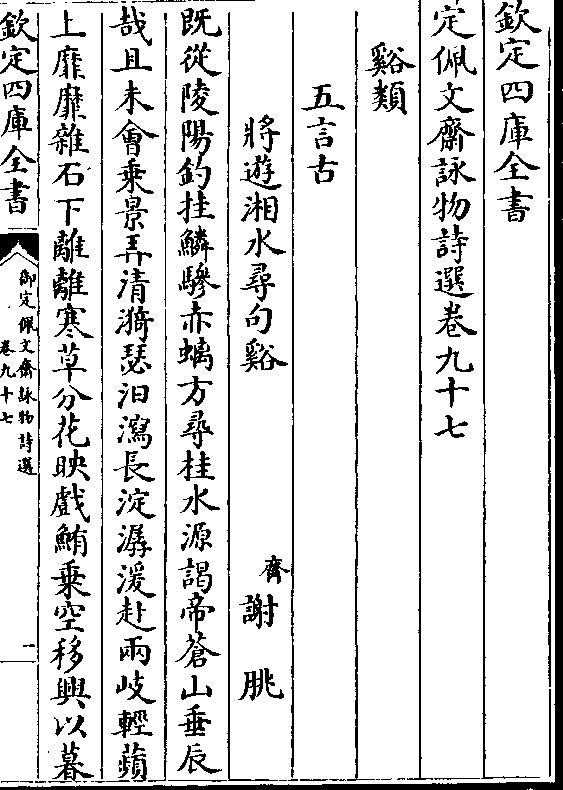 欽定四庫全書
定佩文齋詠物詩選卷九十七
谿類
五言古
將遊湘水尋句谿 齊謝朓
既從陵陽釣挂鱗驂赤螭方尋桂水源謁帝蒼山垂辰
哉且未會乗景弄清漪瑟汨瀉長淀潺湲赴兩岐輕蘋
上靡靡雜石下離離寒草分花映戲鮪乗空移興以暮
欽定四庫全書
御定佩文齋詠物詩選
卷九十七
一